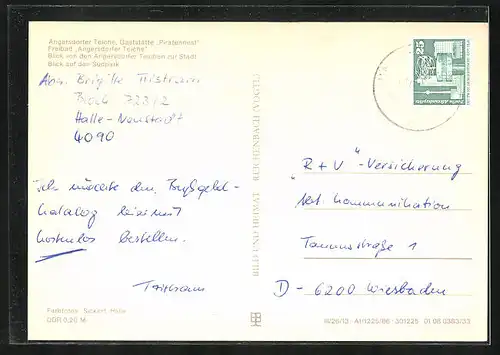 Angersdorfer Teiche, Gaststätte „Piratennest"
Freibad „Angersdorfer Teiche"
Blick von den Angersdorfer Teichen zur Stadt
Blick auf den Südpark
Abs. Brigitte Tristram
Block 723/2
Halle-Neustadt
4090
Ich möchte den Bußgeld-
katalog hiermit
kostenlos bestellen.
Tristram
Fotos: Sickert, Halle
DDR 0,20 M
BILD UND HEIMAT REICHENBACH (VOGTL)
25
"R+V"-Versicherung
Abt. Kommunikation
Taunusstraße 1
D-6200 Wiesbaden
W26/13 A1/1225/86 301225 01 06 0363/33